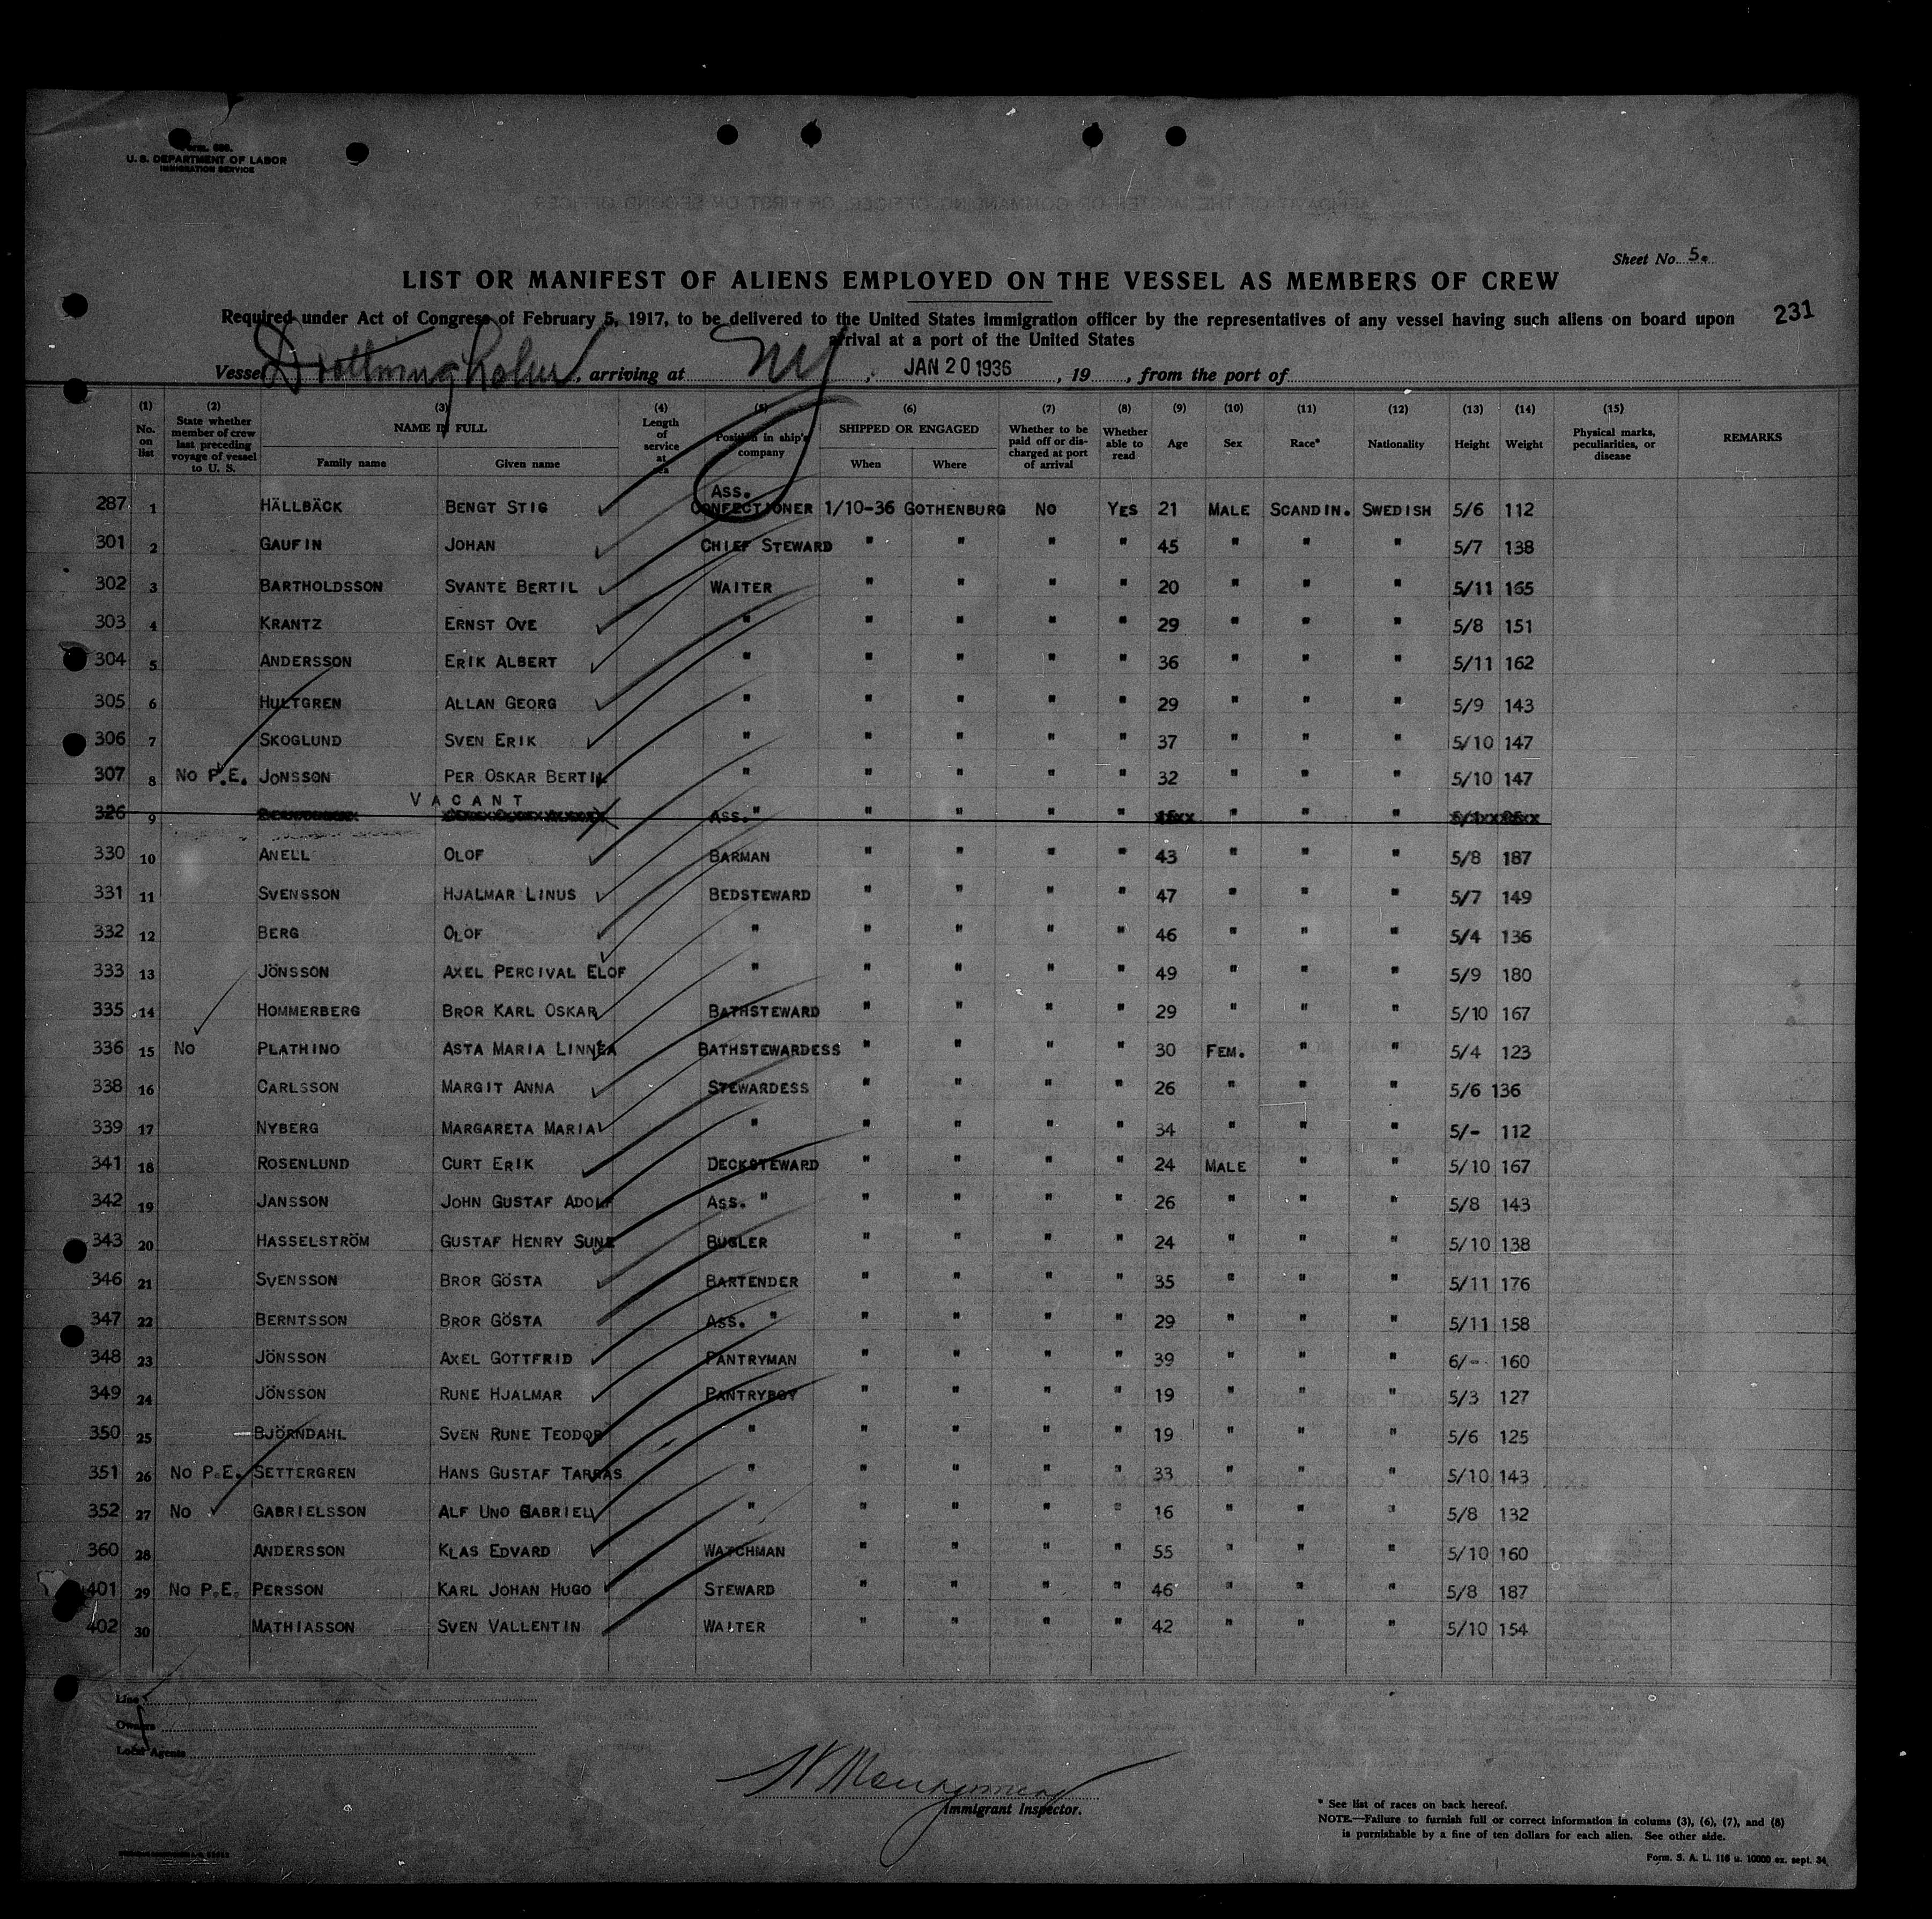 Form. 689.
U. S. DEPARTMENT OF LABOR
IMMIGRATION SERVICE
Sheet No. 5.
LIST OR MANIFEST OF ALIENS EMPLOYED ON THE VESSEL AS MEMBERS OF CREW
231
Required under Act of Congress of February 5, 1917, to be delivered to the United States immigration officer by the representatives of any vessel having such aliens on board upon
arrival at a port of the United States
Vessel Drottningholm, arriving at NY, JAN 20 1936, 19 , from the port of
(1) No. on list (2) State whether member of crew last preceding voyage of vessel to U. S. (3) NAME IN FULL Family name Given name (4) Length of service at sea (5) Position in ship's company (6) SHIPPED OR ENGAGED When Where (7) Whether to be paid off or discharged at port of arrival (8) Whether able to read (9) Age (10) Sex (11) Race* (12) Nationality (13) Height (14) Weight (15) Physical marks, peculiarities, or disease REMARKS
287 1 HÄLLBÄCK BENGT STIG ASS. CONFECTIONER 1/10-36 GOTHENBURG NO YES 21 MALE SCANDIN. SWEDISH 5/6 112
301 2 GAUFIN JOHAN CHIEF STEWARD " " " " 45 " " " 5/7 138
302 3 BARTHOLDSSON SVANTE BERTIL WAITER " " " " 20 " " " 5/11 165
303 4 KRANTZ ERNST OVE " " " " " 29 " " " 5/8 151
304 5 ANDERSSON ERIK ALBERT " " " " " 36 " " " 5/11 162
305 6 HULTGREN ALLAN GEORG " " " " " 29 " " " 5/9 143
306 7 SKOGLUND SVEN ERIK " " " " " 37 " " " 5/10 147
307 8 NO P.E. JONSSON PER OSKAR BERTIL " " " " " 32 " " " 5/10 147
VACANT
326 9 ASS. " " " " " " " "
330 10 ANELL OLOF BARMAN " " " " 43 " " " 5/8 187
331 11 SVENSSON HJALMAR LINUS BEDSTEWARD " " " " 47 " " " 5/7 149
332 12 BERG OLOF " " " " " 46 " " " 5/4 136
333 13 JÖNSSON AXEL PERCIVAL ELOF " " " " " 49 " " " 5/9 180
335 14 HOMMERBERG BROR KARL OSKAR BATHSTEWARD " " " " 29 " " " 5/10 167
336 15 NO PLATHINO ASTA MARIA LINNÉA BATHSTEWARDESS " " " " 30 FEM. " " 5/4 123
338 16 CARLSSON MARGIT ANNA STEWARDESS " " " " 26 " " " 5/6 136
339 17 NYBERG MARGARETA MARIA " " " " " 34 " " " 5/- 112
341 18 ROSENLUND CURT ERIK DECKSTEWARD " " " " 24 MALE " " 5/10 167
342 19 JANSSON JOHN GUSTAF ADOLF ASS. " " " " " 26 " " " 5/8 143
343 20 HASSELSTRÖM GUSTAF HENRY SUNE BUGLER " " " " 24 " " " 5/10 138
346 21 SVENSSON BROR GÖSTA BARTENDER " " " " 35 " " " 5/11 176
347 22 BERNTSSON BROR GÖSTA ASS. " " " " " 29 " " " 5/11 158
348 23 JÖNSSON AXEL GOTTFRID PANTRYMAN " " " " 39 " " " 6/- 160
349 24 JÖNSSON RUNE HJALMAR PANTRYBOY " " " " 19 " " " 5/3 127
350 25 BJÖRNDAHL SVEN RUNE TEODOR " " " " " 19 " " " 5/6 125
351 26 NO P.E. SETTERGREN HANS GUSTAF TARRAS " " " " " 33 " " " 5/10 143
352 27 NO GABRIELSSON ALF UNO GABRIEL " " " " " 16 " " " 5/8 132
360 28 ANDERSSON KLAS EDVARD WATCHMAN " " " " 55 " " " 5/10 160
401 29 NO P.E. PERSSON KARL JOHAN HUGO STEWARD " " " " 46 " " " 5/8 187
402 30 MATHIASSON SVEN VALLENTIN WAITER " " " " 42 " " " 5/10 154
Line
Owners
Local Agents
Immigrant Inspector.
* See list of races on back hereof.
NOTE.—Failure to furnish full or correct information in colums (3), (6), (7), and (8)
is purnishable by a fine of ten dollars for each alien. See other side.
Form. S. A. L. 116 u. 10000 ex. sept. 34.